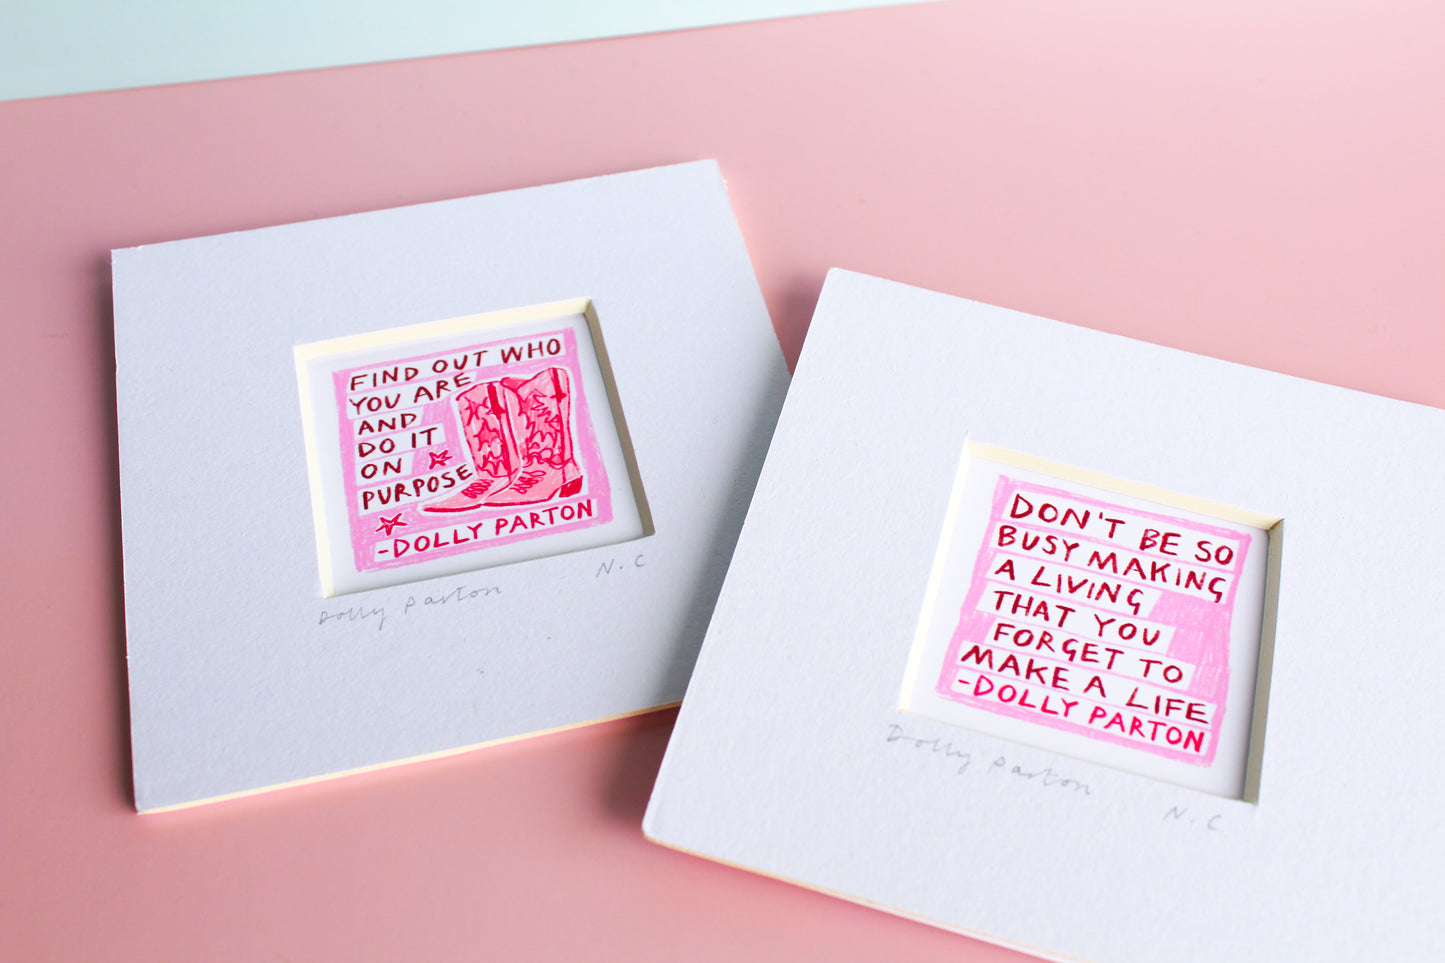 FIND OUT WHO
YOU ARE
AND
DO IT
ON
PURPOSE
-DOLLY PARTON
Dolly Parton N.C
DON'T BE SO
BUSY MAKING
A LIVING
THAT YOU
FORGET TO
MAKE A LIFE
-DOLLY PARTON
Dolly Parton N.C